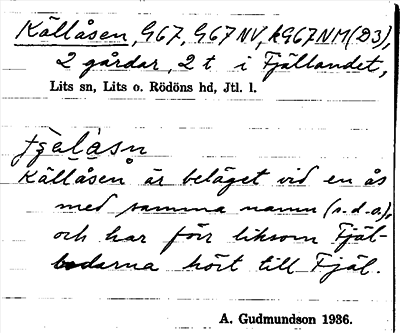 Källåsen, G67, G67NV, kG67NM(D3),
2 gårdar, 2 t i Fjällandet,
Lits sn, Lits o. Rödöns hd, Jtl. l.
Källåsen är beläget vid en ås
med samma namn (s.d.o.),
och har förr liksom Fjäl-
bodarna hört till Fjäl.
A. Gudmundson 1936.